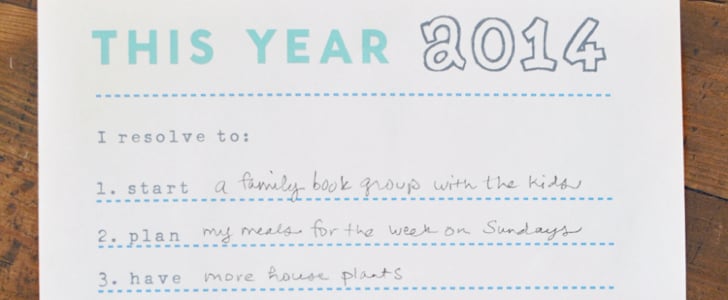 THIS YEAR 2014
I resolve to:
1. start a family book group with the kids
2. plan my meals for the week on Sundays
3. have more house plants